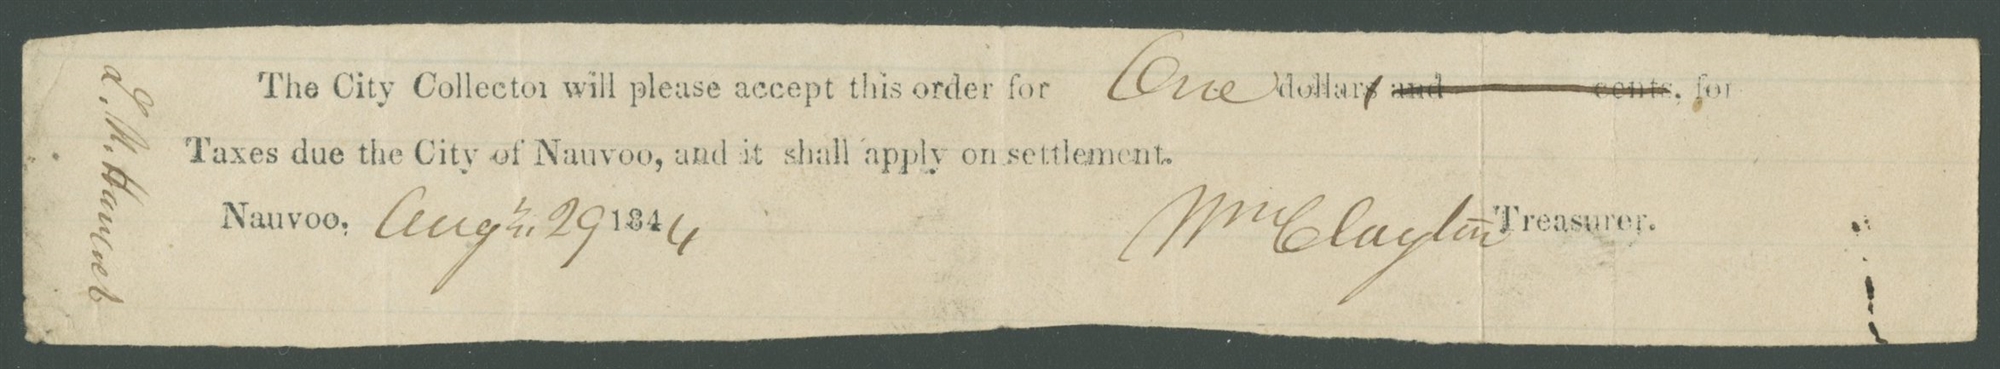 The City Collector will please accept this order for One dollars and cents, for
Taxes due the City of Nauvoo, and it shall apply on settlement.
Nauvoo, Augt. 29 1844 Wm Clayton Treasurer.